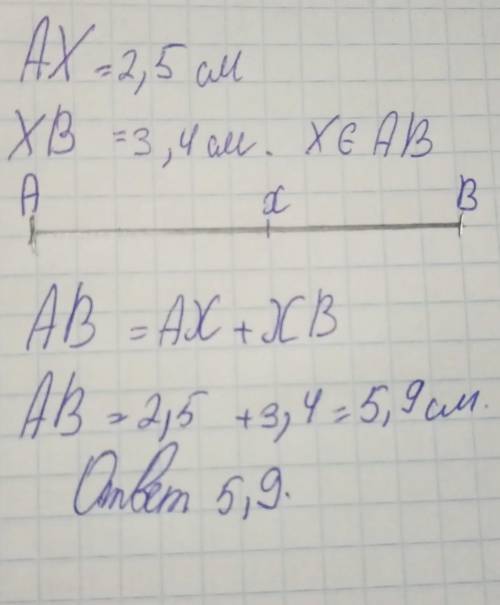 AX = 2,5 см
XB = 3,4 см. X ∈ AB
A x B
AB = AX + XB
AB = 2,5 + 3,4 = 5,9 см.
Ответ 5,9.